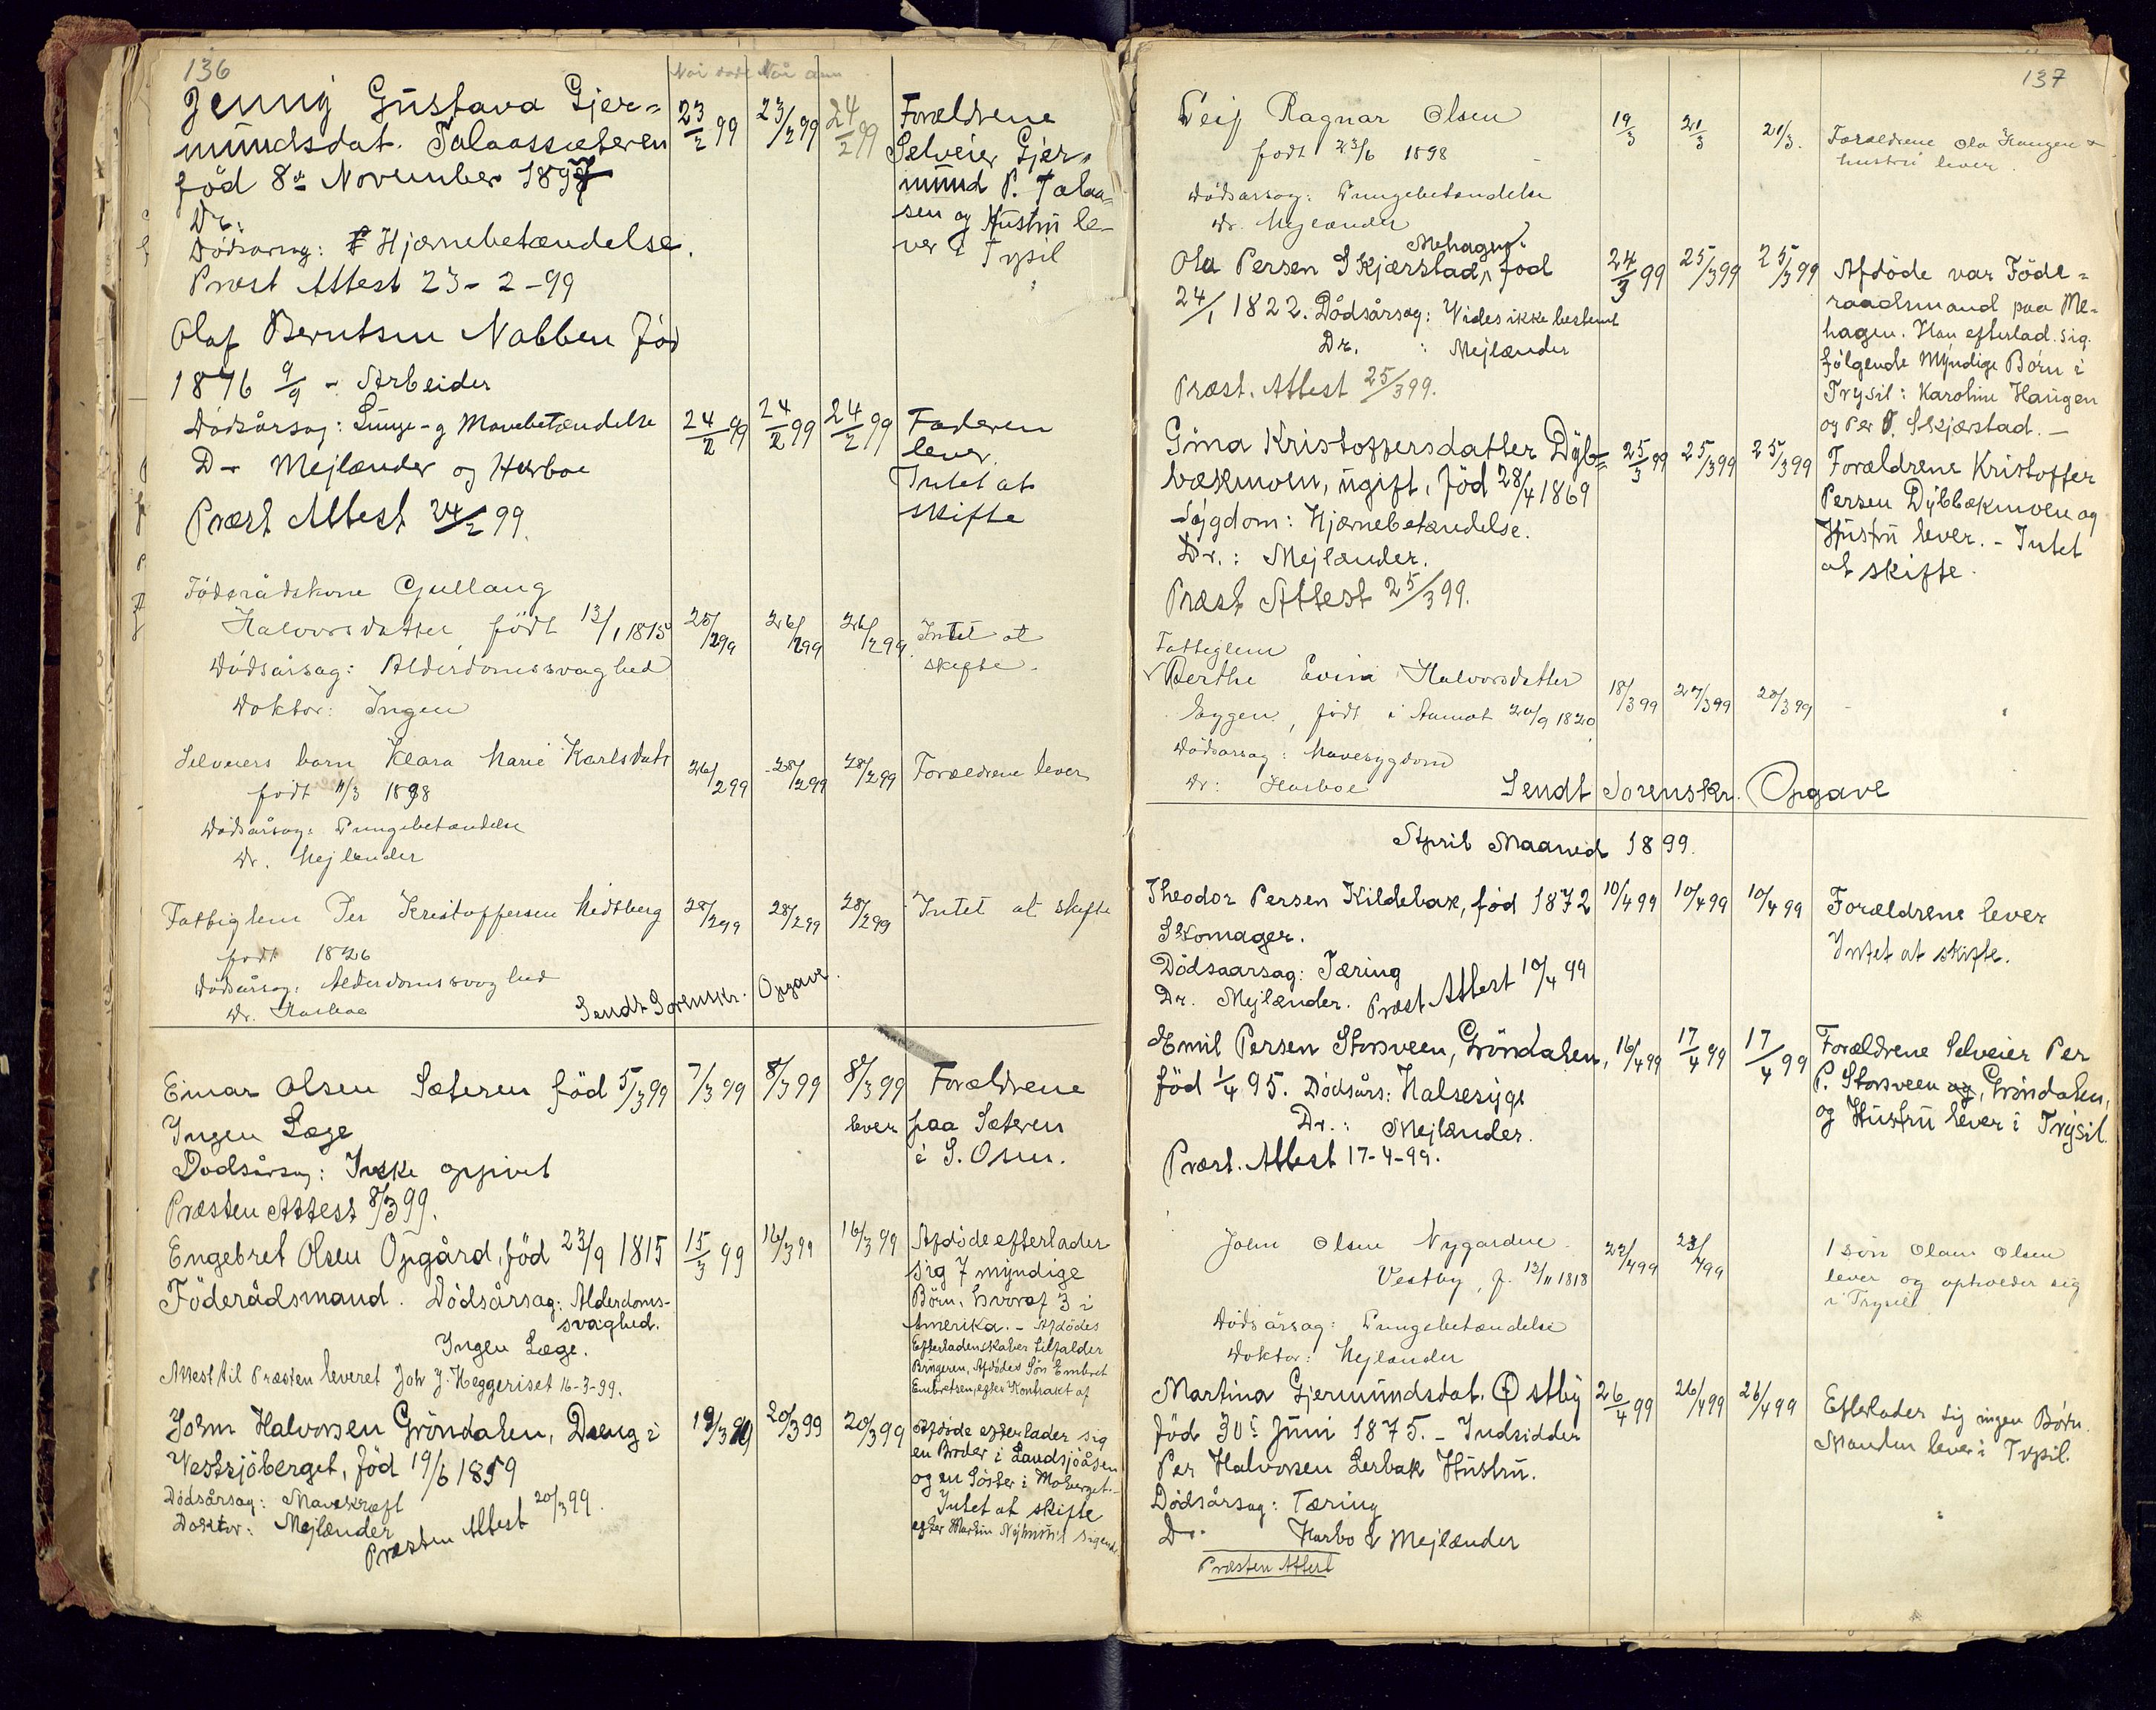 136
Når døde Når anm
Jenny Gustava Gjer=
mundsdat. Talaassæteren
född 8de November 1897
23/2 99 23/2 99 24/2 99
Forældrene
Selveier Gjer=
mund P. Talaa=
sen og Hustru le-
ver i Trysil
Dr:
Dødsårsag: Hjærnebetændelse.
Præst Attest 23-2-99
Olaf Berntsen Nabben Född
1876 9/9 - Arbeider
Dødsårsag: Lunge- og Mavebetændelse
24/2 99 24/2 99 24/2 99
Faderen
lever.
Intet at
skifte
Dr Mejlænder og Harboe
Præst Attest 24/2 99.
Föderådskone Gullaug
Halvorsdatter født 13/1 1815
25/2 99 26/2 99 26/2 99.
Intet at
skifte.
Dødsårsag: Alderdomssvaghed
Doktor: Ingen
Selveiers barn Klara Marie Karlsdatr
født 11/3 1898
26/2 99 28/2 99 28/2 99
Forældrene lever
Dødsårsag: Lungebetændelse
Dr. Mejlænder
Fattiglem Per Kristoffersen Midtberg
født 1826
28/2 99 28/2 99 28/2 99
Intet at skifte
Dødsårsag: Alderdomssvaghed
Dr. Harboe
Sendt Sorenskr. Opgave.
Einar Olsen Sæteren född 5/3 99
7/3 99 8/3 99 8/3 99
Forældrene
lever paa Sæteren
i S. Osen.
Ingen Læge
Dødsårsag: Ikke opgivet
Præsten Attest 8/3 99.
Engebret Olsen Opgård, född 23/9 1815
15/3 99 16/3 99 16/3 99
Föderådsmand. Dødsårsag: Alderdoms-
svaghed.
Ingen Læge.
Attest til Præsten leveret Joh J. Heggeriset 16-3-99.
Afdöde efterlader
sig 7 myndige
Börn, hvoraf 3 i
Amerika. - Afdödes
Efterladenskaber tilfalder
Brugeren, Afdödes Sön Embret
Embretsen, efter Kontrakt af
John Halvorsen Gröndalen, Dreng i
Vestsjöberget, född 19/6 1859
19/3 99 20/3 99 20/3 99
Afdöde efterlader sig
en Broder i Landsjöåsen
og en Söster i Moberget.-
Intet at skifte
efter Martin Nyhuus's sigende
Dødsårsag: Mavekræft
Doktor: Mejlænder
Præsten Attest 20/3 99.
137
Leif Ragnar Olsen
født 23/6 1898
19/3 21/3 21/3.
Forældrene Ola Haugen &
hustru lever.
Dødsårsag: Lungebetændelse
Dr. Mejlænder
Mehagen.
Ola Persen Skjærstad, född
24/1 1822. Dödsårsag: Vides ikke bestemt
Dr. : Mejlænder
Præst. Attest 25/3 99.
24/3 99 25/3 99 25/3 99
Afdöde var Föde=
raadsmand paa Me-
hagen. Han efterlad. sig
fölgende Myndige Börn i
Trysil: Karoline Haugen
og Per O. Skjærstad. -
Gina Kristoffersdatter Dyb=
bækmoen, ugift, född 28/4 1869
25/3 99 25/3 99 25/3 99
Forældrene Kristoffer
Persen Dybbækmoen og
Hustru lever. - Intet
at skifte.
Sygdom: Hjærnebetændelse.
Dr.: Mejlænder.
Præst Attest 25/3 99.
Fattiglem
Berthe Evina Halvorsdatter
Eggen, født i Aamot 20/9 1820
18/3 99 27/3 99 28/3 99
Dødsårsag: Mavesygdom
Dr: Harboe
Sendt Sorenskr. Opgave
April Maaned 1899.
Theodor Persen Kildebæk, född 1872
10/4 99 10/4 99 10/4 99
Skomager.
Forældrene lever
Intet at skifte.
Dödsaarsag: Tæring
Dr. Mejlænder. Præst Attest 10/4 99
Emil Persen Storsveen, Gröndalen,
född 1/4 95. Dödsårs: Halsesyge
Dr.: Mejlænder.
Præst. Attest 17-4-99.
16/4 99 17/4 99 17/4 99
Forældrene Selveier Per
P. Storsveen og, Gröndalen,
og Hustru lever i Trysil.
John Olsen Nygardene
Vestby, f. 13/11 1818
22/4 99 23/4 99
1 sön Olaus Olsen
lever og opholder sig
i Trysil
Dödsårsag: Lungebetændelse
Doktor: Mejlænder
Martina Gjermundsdat. Østby
född 30: Juni 1875. - Indsidder
Per Halvorsen Lerbak Hustru.
26/4 99 26/4 99 26/4 99
Efterlader sig ingen Börn.
Manden lever i Trysil.
Dödsårsag: Tæring
Dr. Harbo & Mejlænder
Præsten Attest